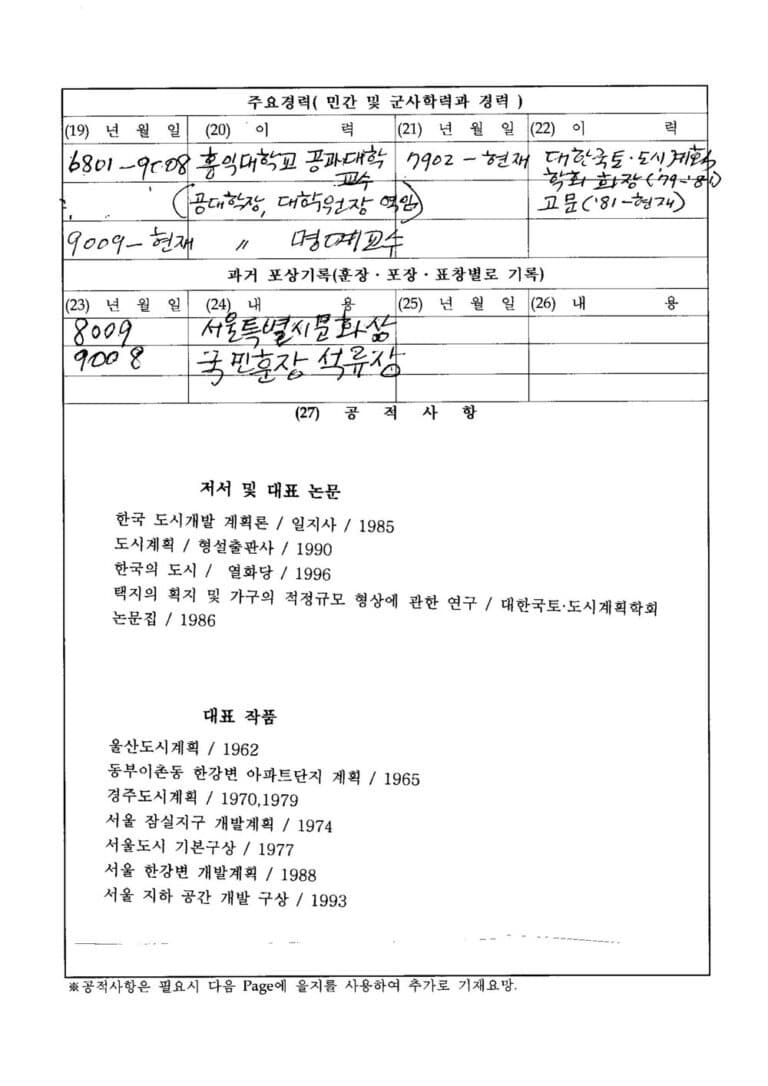 주요경력( 민간 및 군사학력과 경력 )
(19) 년 월 일 (20) 이 력 (21) 년 월 일 (22) 이 력
6801-9008 홍익대학교 공과대학 교수 7902-현재 대한국토·도시계획
학회 회장('79-'81)
(공대학장, 대학원장 역임) 고문('81-현재)
9009-현재 〃 명예교수
과거 포상기록(훈장·포장·표창별로 기록)
(23) 년 월 일 (24) 내 용 (25) 년 월 일 (26) 내 용
8009 서울특별시문화상
9008 국민훈장 석류장
(27) 공 적 사 항
저서 및 대표 논문
한국 도시개발 계획론 / 일지사 / 1985
도시계획 / 형설출판사 / 1990
한국의 도시 / 열화당 / 1996
택지의 획지 및 가구의 적정규모 형상에 관한 연구 / 대한국토·도시계획학회
논문집 / 1986
대표 작품
울산도시계획 / 1962
동부이촌동 한강변 아파트단지 계획 / 1965
경주도시계획 / 1970,1979
서울 잠실지구 개발계획 / 1974
서울도시 기본구상 / 1977
서울 한강변 개발계획 / 1988
서울 지하 공간 개발 구상 / 1993
※공적사항은 필요시 다음 Page에 을지를 사용하여 추가로 기재요망.